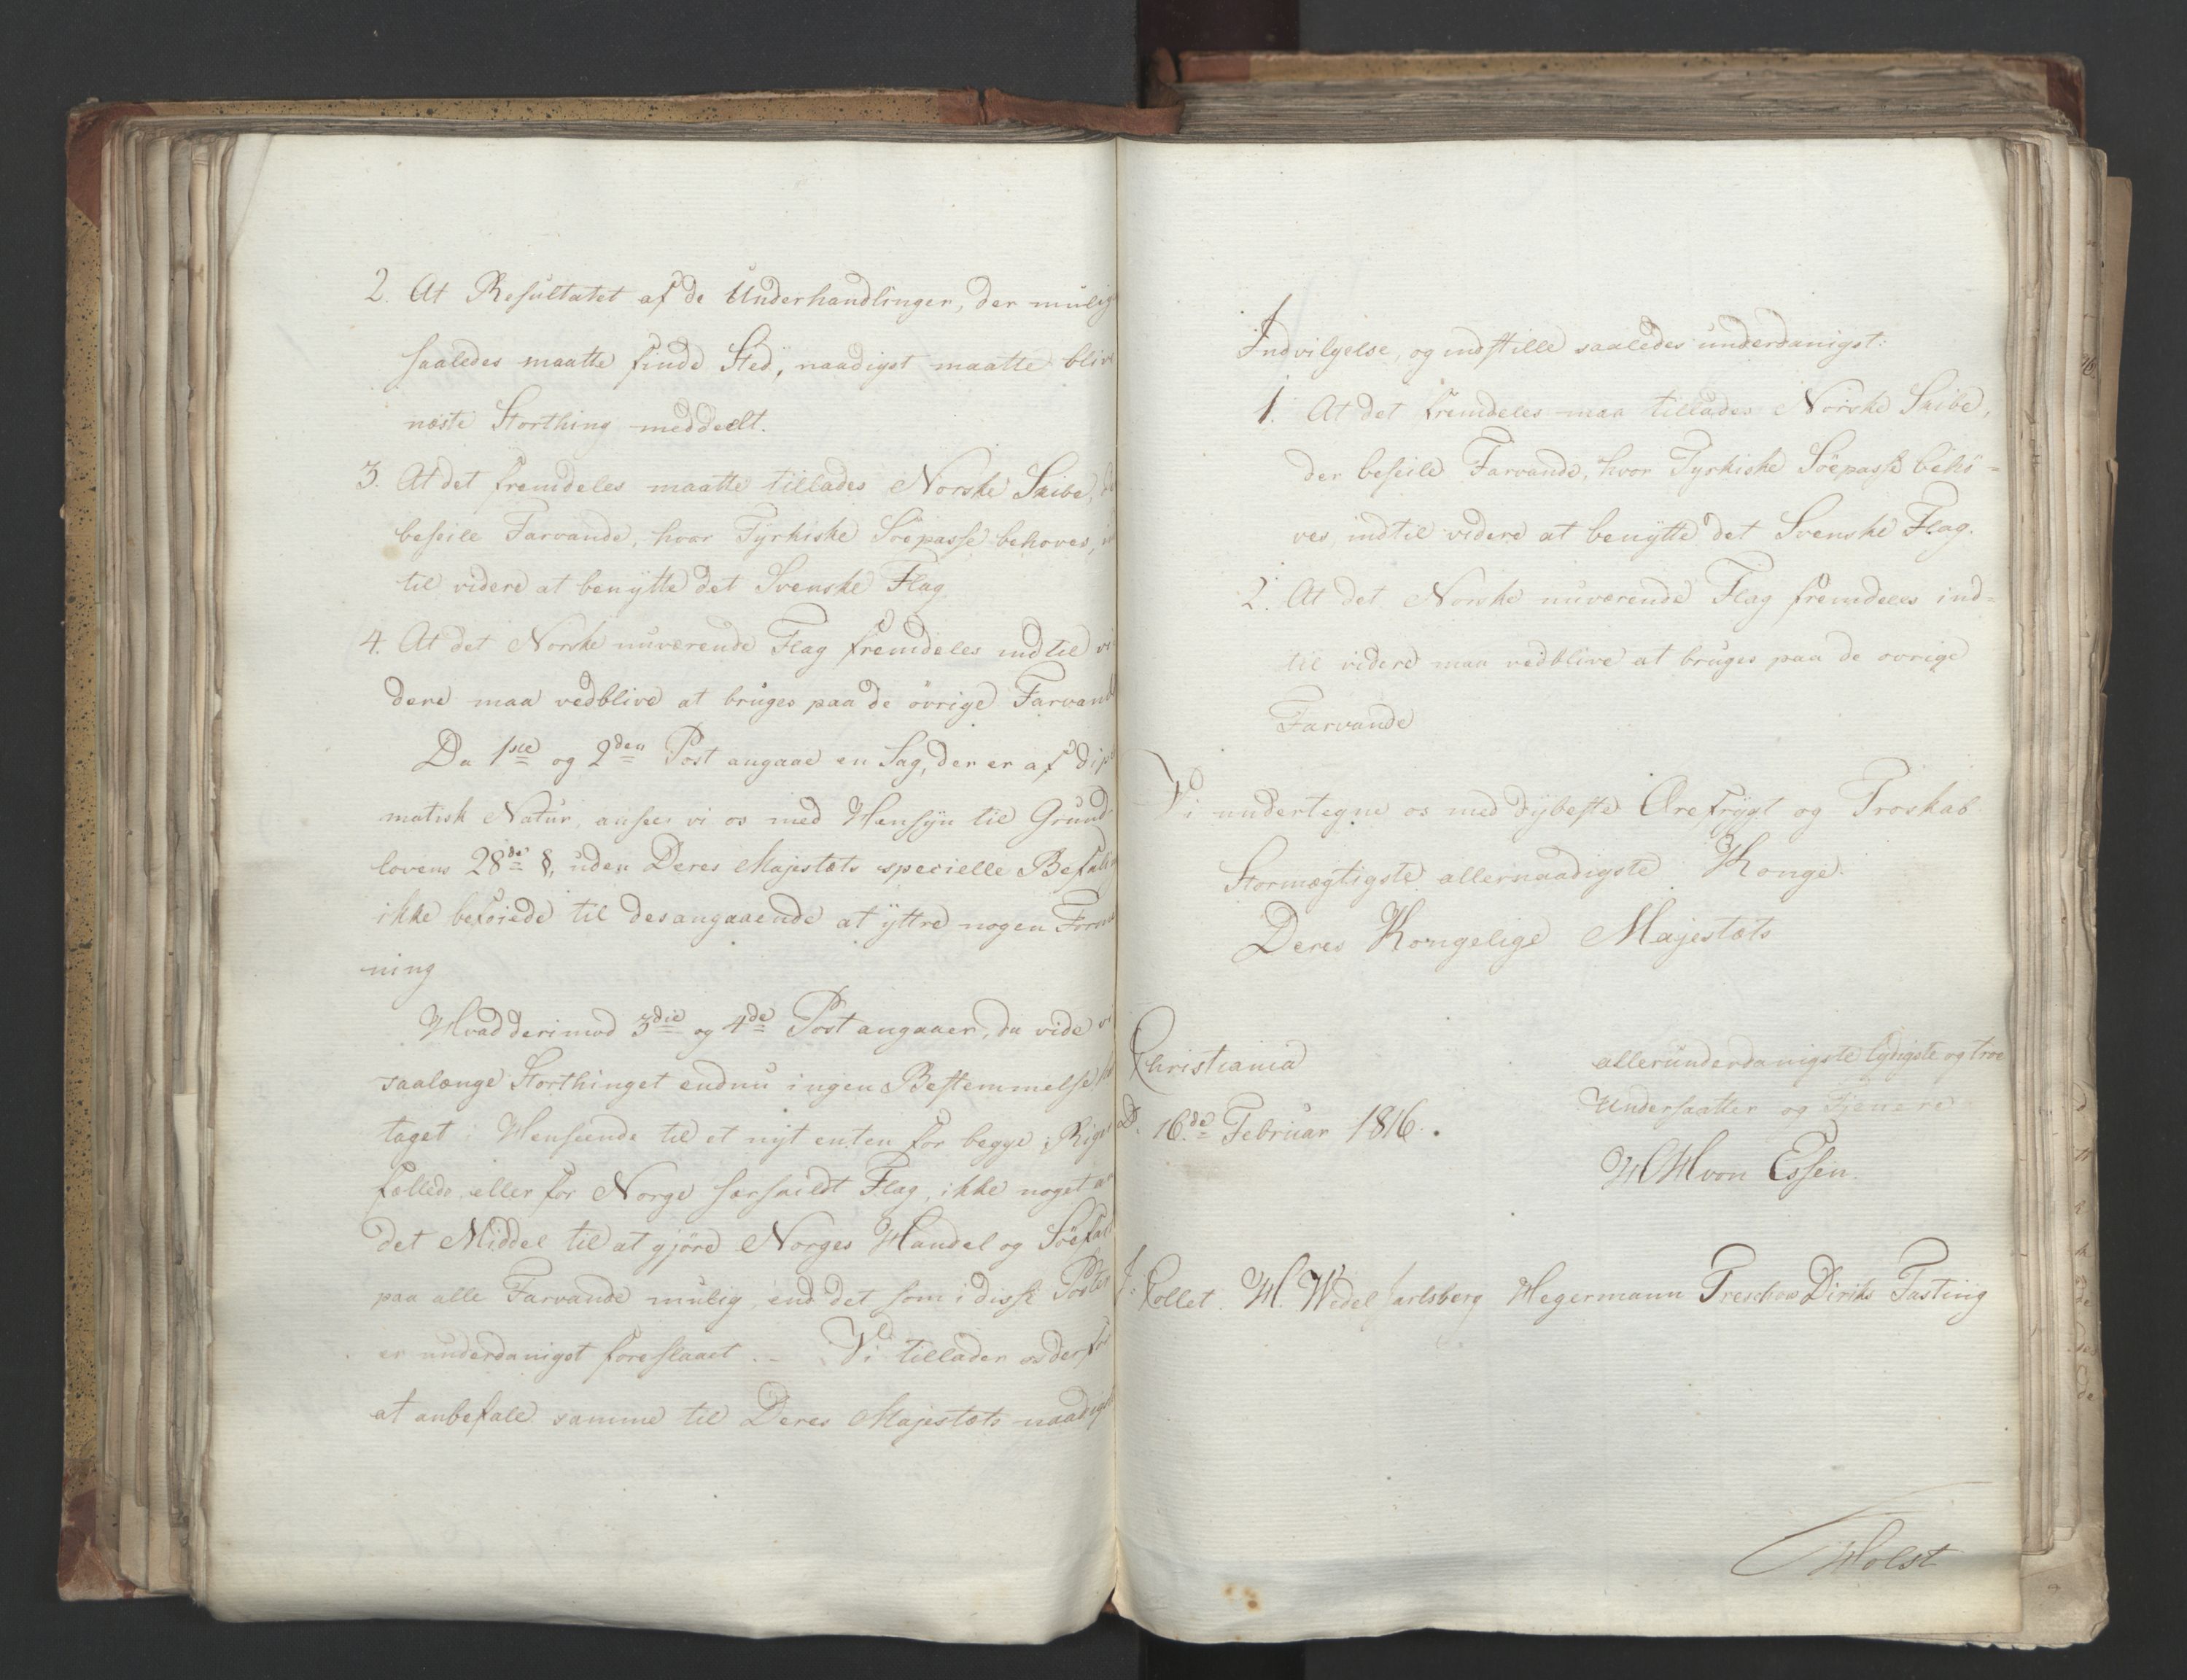 2. At Resultatet af de Underhandlinger, der mulig
saaledes maatte finde Sted, naadigst maatte blive
næste Storthing meddeelt.
3. At det fremdeles maatte tillades Norske Skibe,
beseile Farvande, hvor Tyrkiske Söepasse behoves,
til videre at benytte det Svenske Flag
4. At det Norske nuværende Flag fremdeles indtil vi
dere maa vedblive at bruges paa de övrige Farvand
Da 1ste og 2den Post angaae en Sag, der er af dip
matisk Natur, ansee vi os med Hensyn til Grund
lovens 28de §, uden Deres Majestæts specielle Befal
ikke beföiede til desangaaende at yttre nogen
ning
Hvad derimod 3die og 4de Post angaaer, da vide vi
saalænge Storthinget endnu ingen Bestemmelse
taget i Henseende til et nyt enten for begge Rige
fælleds eller for Norge særskildt Flag, ikke noget an
det Middel til at gjöre Norges Handel og Söefart
paa alle Farvande mulig end det som i disse Poster
er underdanigst foreslaaet. – Vi tillader os derfor
at anbefale samme til Deres Majestæts naadigst
Indvilgelse, og indstille saaledes underdanigst:
1. At det fremdeles maa tillades Norske Skibe,
der beseile Farvande, hvor Tyrkiske Söepasse behö=
ves indtil videre at benytte det Svenske Flag.
2. At det Norske nuværende Flag fremdeles ind=
til videre maa vedblive at bruges paa de ovrige
Farvande
Vi undertegne os med dybeste Ærefrygt og Troskab
Stormægtigste allernaadigste Konge.
Deres Kongelige Majestæts
Christiania
D. 16de Februar 1816.
allerunderdanigste lydigste og troe
Undersaatter og Tjenere
HH von Essen.
J. Collet. H. Wedel Jarlsberg Hegermann Treschow Diriks Fasting
Holst